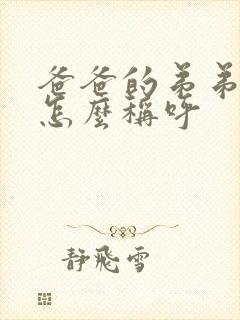 爸爸的弟弟
怎麼稱呼
靜飛雪